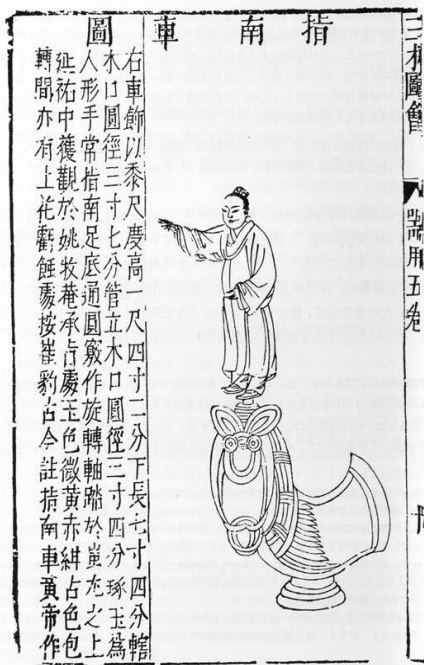 三才圖會 器用五卷
指南車圖
右車飾以黍尺度高一尺四寸二分下長七寸四分轄
木口圓徑三寸七分管立木口圓徑三寸四分琢玉為
人形手常指南足底通圓竅作旋轉軸踏於蚩尤之上
延祐中獲觀於姚牧菴承旨處玉色微黃赤紺古色包
轉間亦有土花虧蝕處按崔豹古今註指南車黃帝作